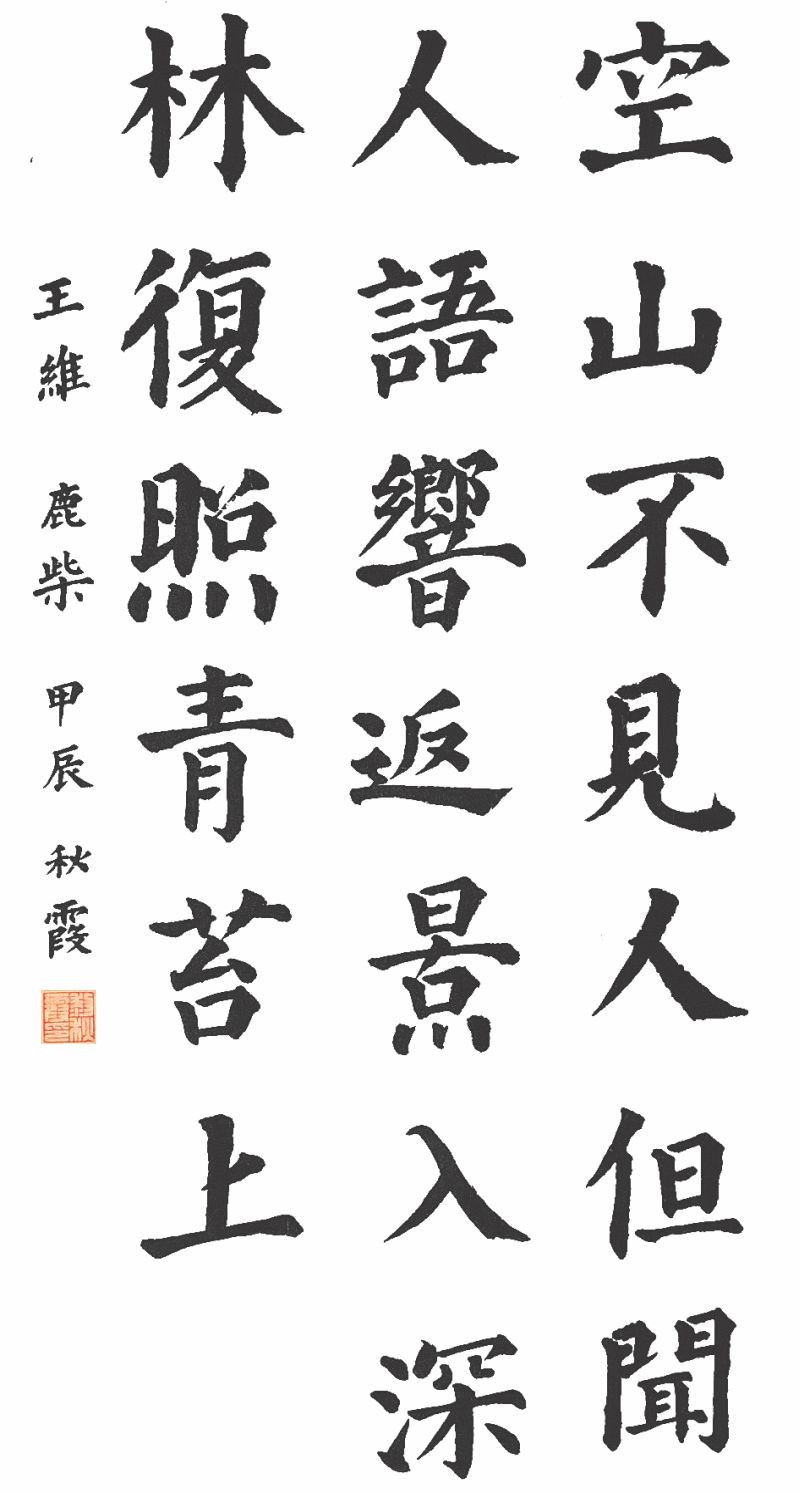 空山不見人但聞
人語響返景入深
林復照青苔上
王維 鹿柴 甲辰 秋霞